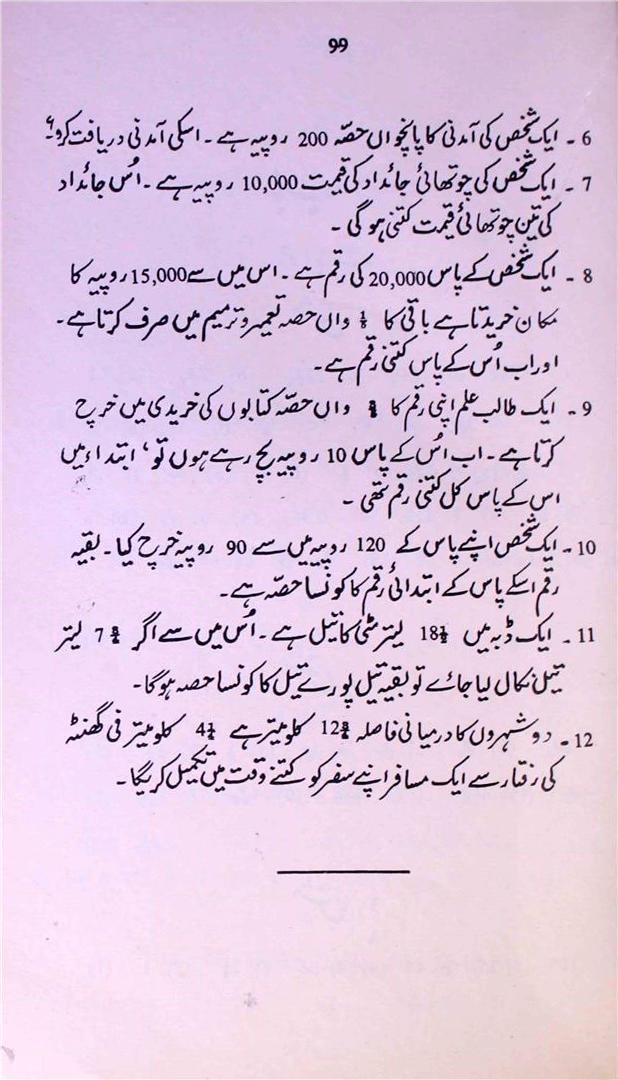 99
6 - ایک شخص کی آمدنی کا پانچواں حصّہ 200 روپیہ ہے۔ اسکی آمدنی دریافت کرو۔
7 - ایک شخص کی چوتھائی جائداد کی قیمت 10,000 روپیہ ہے۔ اُس جائداد
کی تین چوتھائی قیمت کتنی ہو گی۔
8 - ایک شخص کے پاس 20,000 کی رقم ہے۔ اس میں سے 15,000 روپیہ کا
مکان خریدتا ہے باقی کا واں حصہ تعمیر و ترمیم میں صرف کرتا ہے۔
اور اب اُس کے پاس کتنی رقم ہے۔
9 - ایک طالب علم اپنی رقم کا واں حصّہ کتابوں کی خریدی میں خرچ
کرتا ہے۔ اب اُس کے پاس 10 روپیہ بچ رہے ہوں تو، ابتداء میں
اس کے پاس کل کتنی رقم تھی۔
10 - ایک شخص اپنے پاس کے 120 روپیہ میں سے 90 روپیہ خرچ کیا۔ بقیہ
رقم اسکے پاس کے ابتدائی رقم کا کونسا حصہ ہے۔
11 - ایک ڈبہ میں 18½ لیتر مٹی کا تیل ہے۔ اُس میں سے اگر 7 لیتر
تیل نکال لیا جائے تو بقیہ تیل پورے تیل کا کونسا حصہ ہوگا۔
12 - دو شہروں کا درمیانی فاصلہ 12 کلو میتر ہے 4 کلو میتر فی گھنٹہ
کی رفتار سے ایک مسافر اپنے سفر کو کتنے وقت میں تکمیل کریگا۔